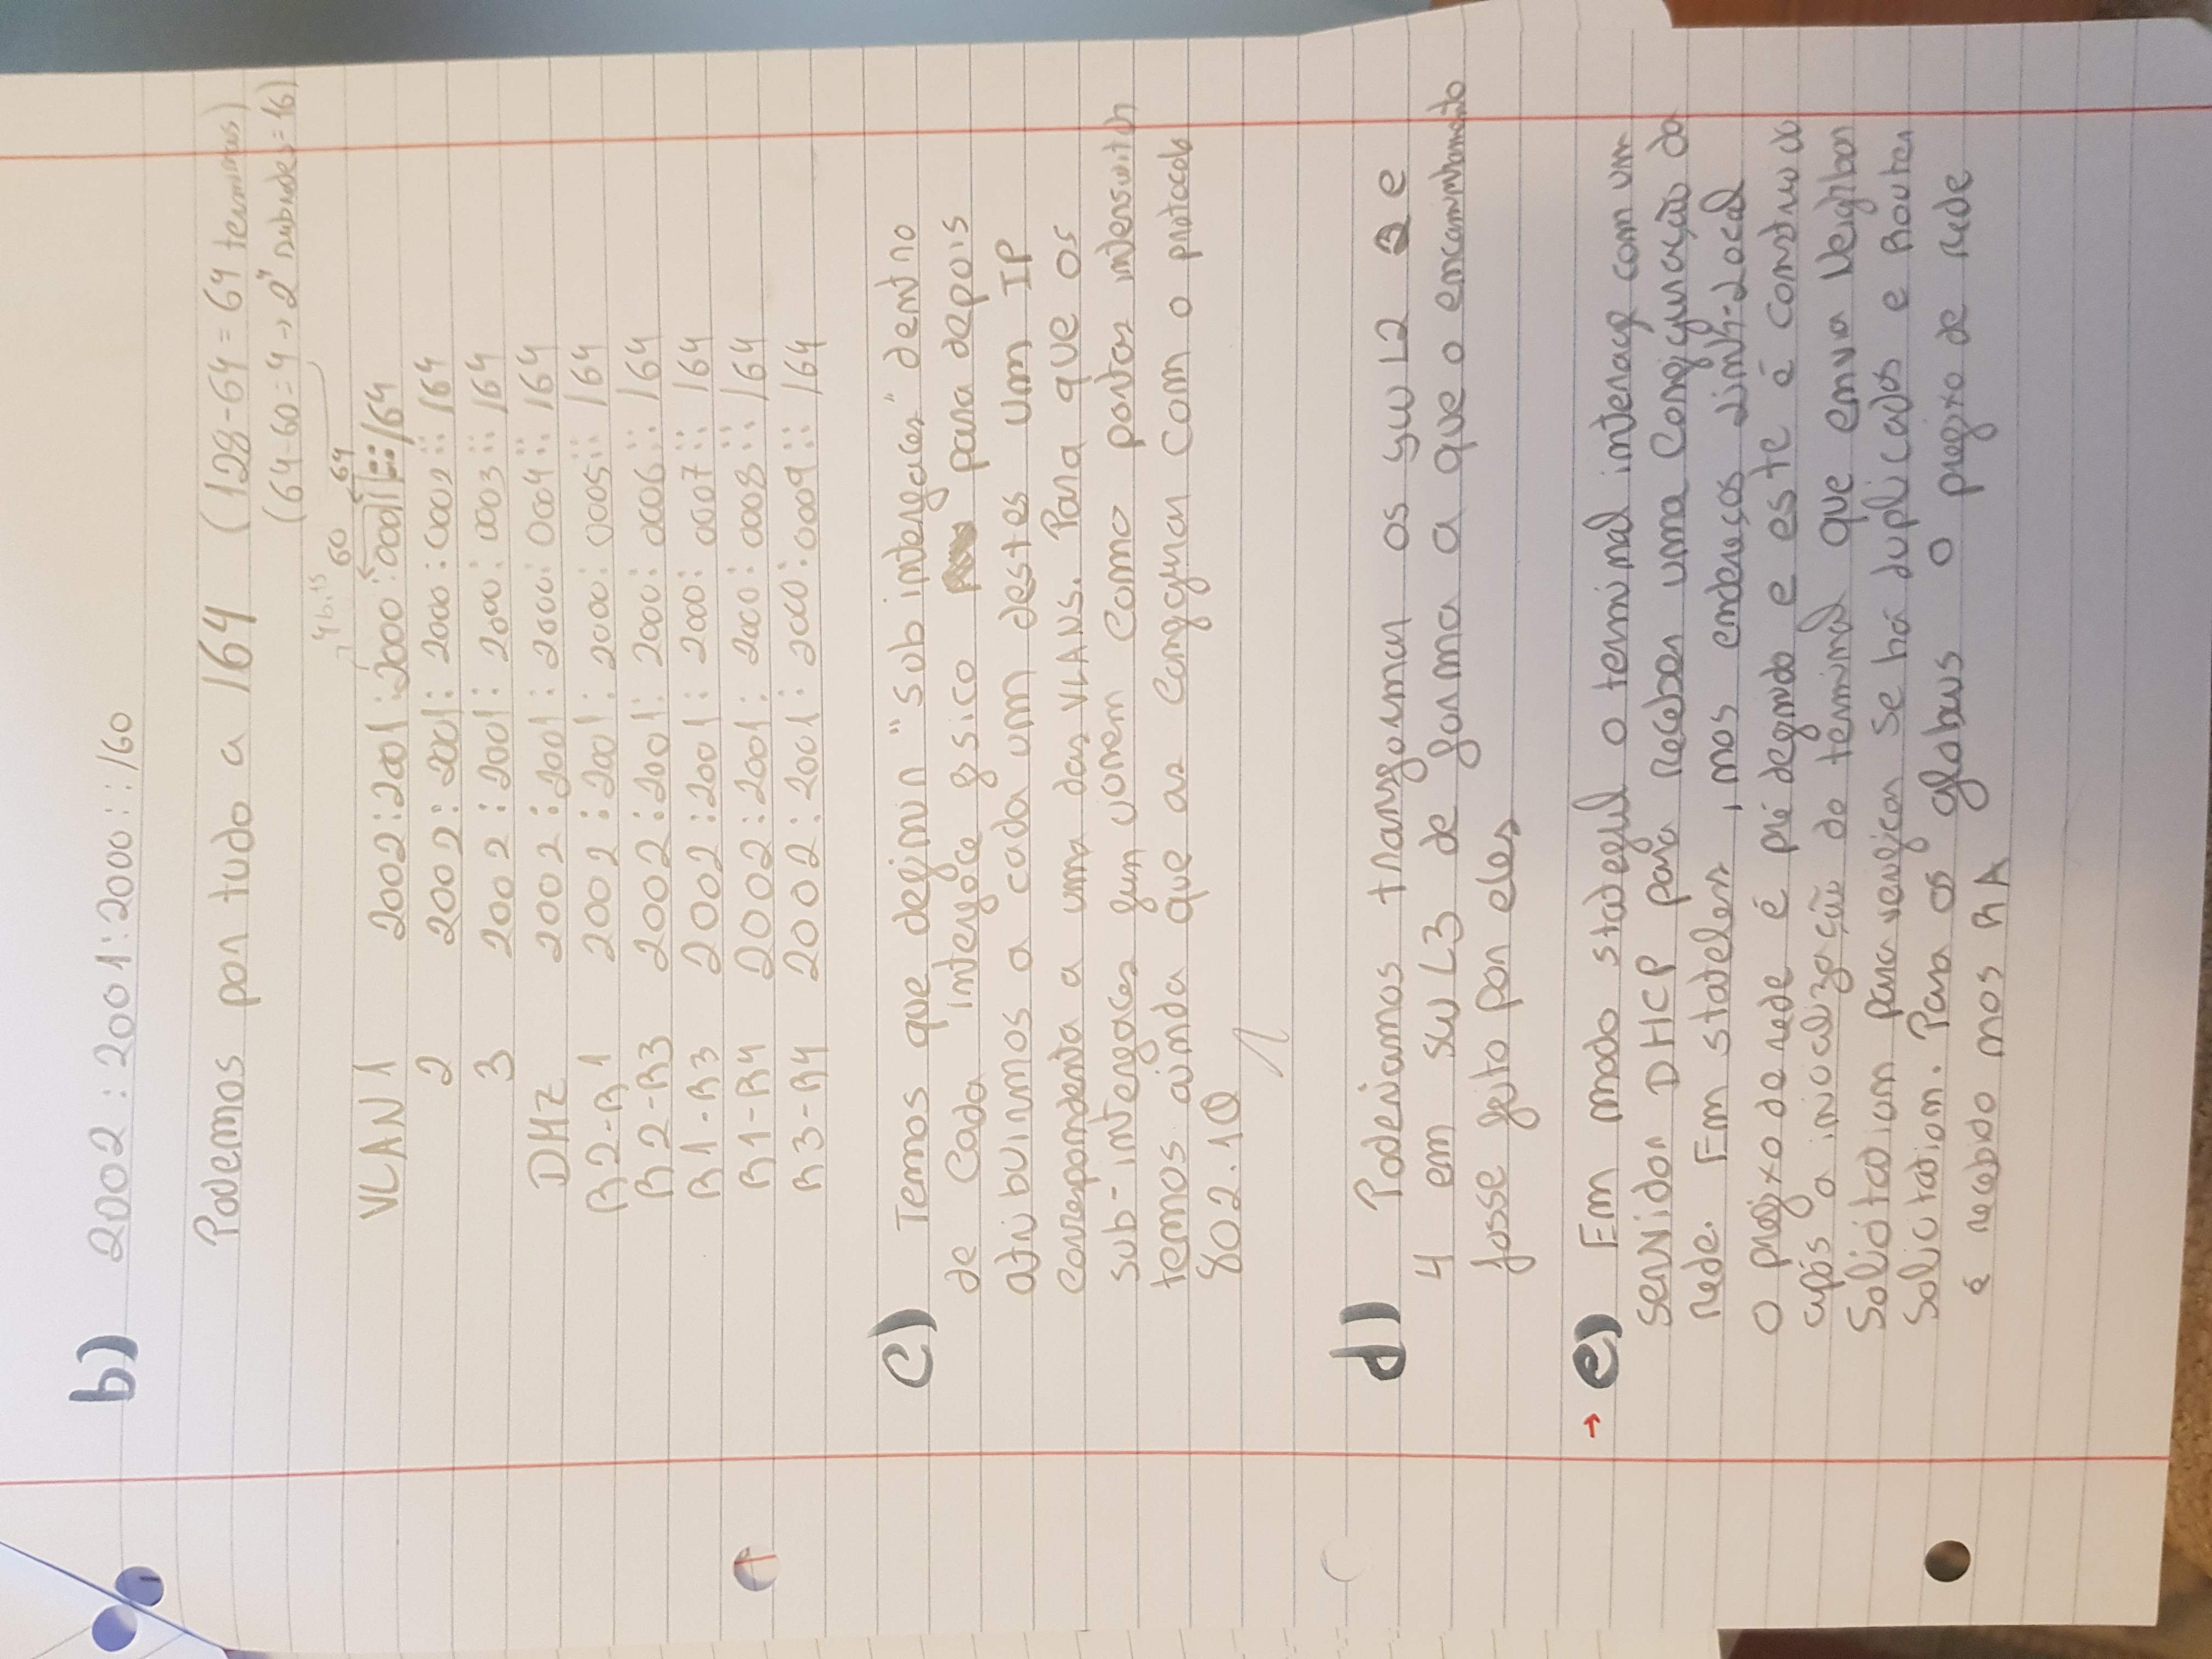 b) 2002:2001:2000::/60
Podemos por tudo a /64 (128-64=64 terminais)
(64-60=4→2⁴ subredes=16)
4bits 60 64
VLAN 1 2002:2001:2000:0001::/64
2 2002:2001:2000:0002::/64
3 2002:2001:2000:0003::/64
DMZ 2002:2001:2000:0004::/64
R2-R1 2002:2001:2000:0005::/64
R2-R3 2002:2001:2000:0006::/64
R1-R3 2002:2001:2000:0007::/64
R1-R4 2002:2001:2000:0008::/64
R3-R4 2002:2001:2000:0009::/64
c) Temos que definir "sub interfaces" dentro
de cada interface fisico para depois
atribuirmos a cada um destes um IP
correspondente a uma das VLANS. Para que os
sub-interfaces funcionem como portas interswitch
temos ainda que as configurar com o protocolo
802.1Q
d) Poderiamos transformar os SW L2 2 e
4 em SW L3 de forma a que o encaminhamento
fosse feito por eles
→ e) Em modo stateful o terminal interage com um
servidor DHCP para receber uma configuração da
rede. Em stateless, nos endereços Link-Local
o prefixo de rede é pré definido e este é construido
após a inicialização do terminal que envia Neighbor
Solicitation para verificar se há duplicados e Router
Solicitation. Para os globais o prefixo de rede
é recebido nos RA